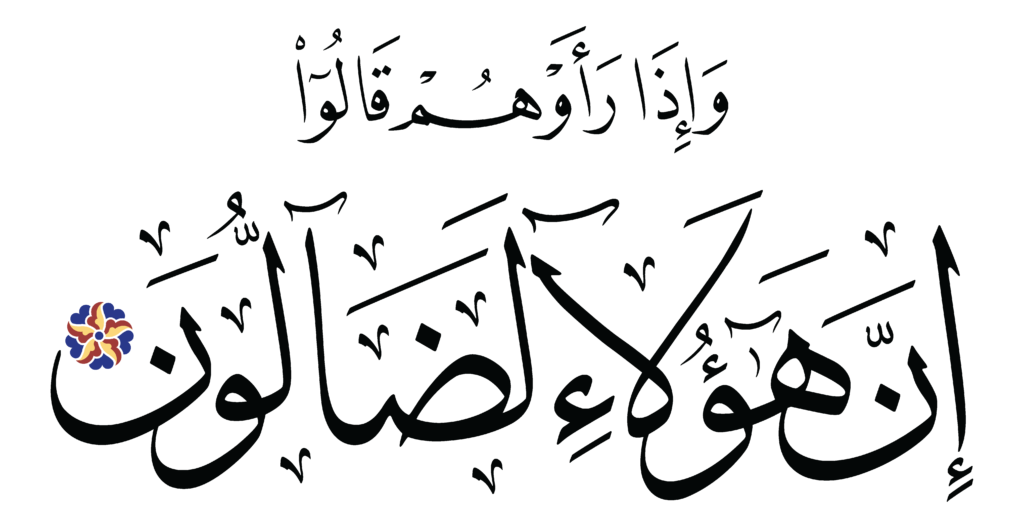 وَإِذَا رَأَوْهُمْ قَالُوٓا۟
إِنَّ هَـٰٓؤُلَآءِ لَضَآلُّونَ